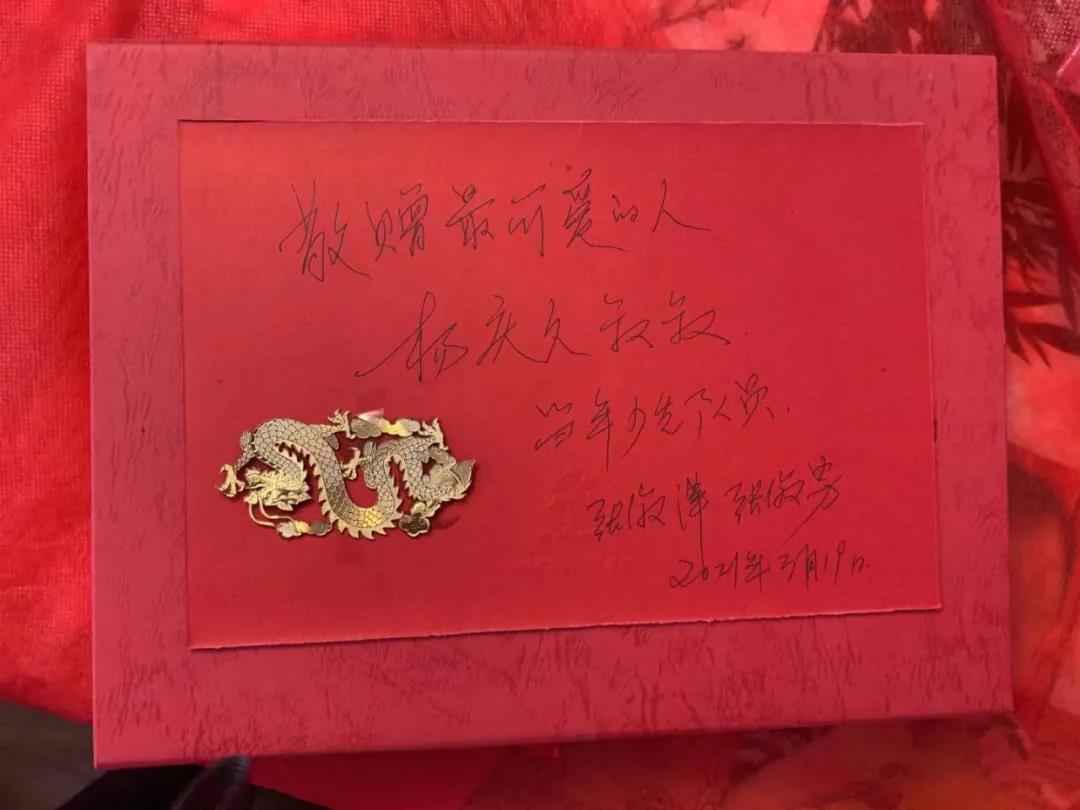 敬赠最可爱的人
杨庆久叔叔.
当年少先队员.
张俊萍 张俊芳
2021年3月19日.